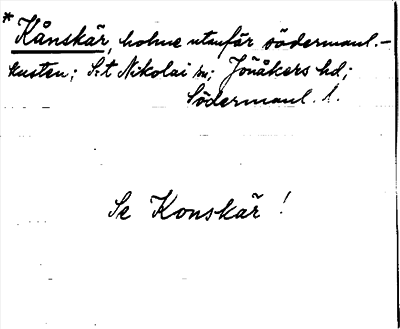 * Kånskär, holme utanför södermanl.-
kusten; S:t Nikolai sn; Jönåkers hd;
Södermanl. l.
Se Konskär!